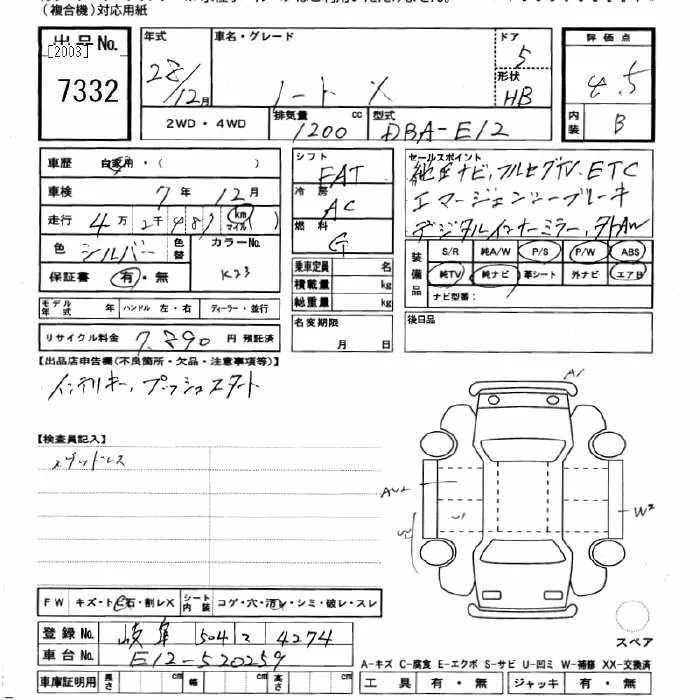 （複合機）対応用紙
出品No.
[2003]
7332
年式
28/12月
車名・グレード
ノート X
ドア
5
形状
HB
評価点
4.5
内装
B
2WD・4WD
排気量
1200
cc
型式
DBA-E12
車歴
自家用・（ ）
車検
7年12月
走行
4万2千487
km
マイル
色
シルバー
色替
カラーNo.
K23
保証書
有・無
シフト
FAT
冷房
AC
燃料
G
乗車定員
名
積載量
kg
総重量
kg
セールスポイント
純正ナビ，フルセグTV．ETC
エマージェンシーブレーキ
デジタルインナーミラー，
装備品
S/R
純A/W
P/S
P/W
ABS
純TV
純ナビ
革シート
外ナビ
エアB
ナビ型番：
モデル年式
年
ハンドル 左・右
ディーラー・並行
リサイクル料金
7,890
円 預託済
名変期限
月 日
後日品
【出品店申告欄(不良箇所・欠品・注意事項等)】
インテリキー，プッシュスタート
【検査員記入】
A1
W2
FW
キズ・ト石・割レX
シート内装
コゲ・穴・汚レ・シミ・破レ・スレ
登録No.
岐阜 504 4274
車台No.
E12-520259
スペア
A-キズ C-腐食 E-エクボ S-サビ U-凹ミ W-補修 XX-交換済
車庫証明用
長さ
cm
幅
cm
高さ
cm
工具
有・無
ジャッキ
有・無